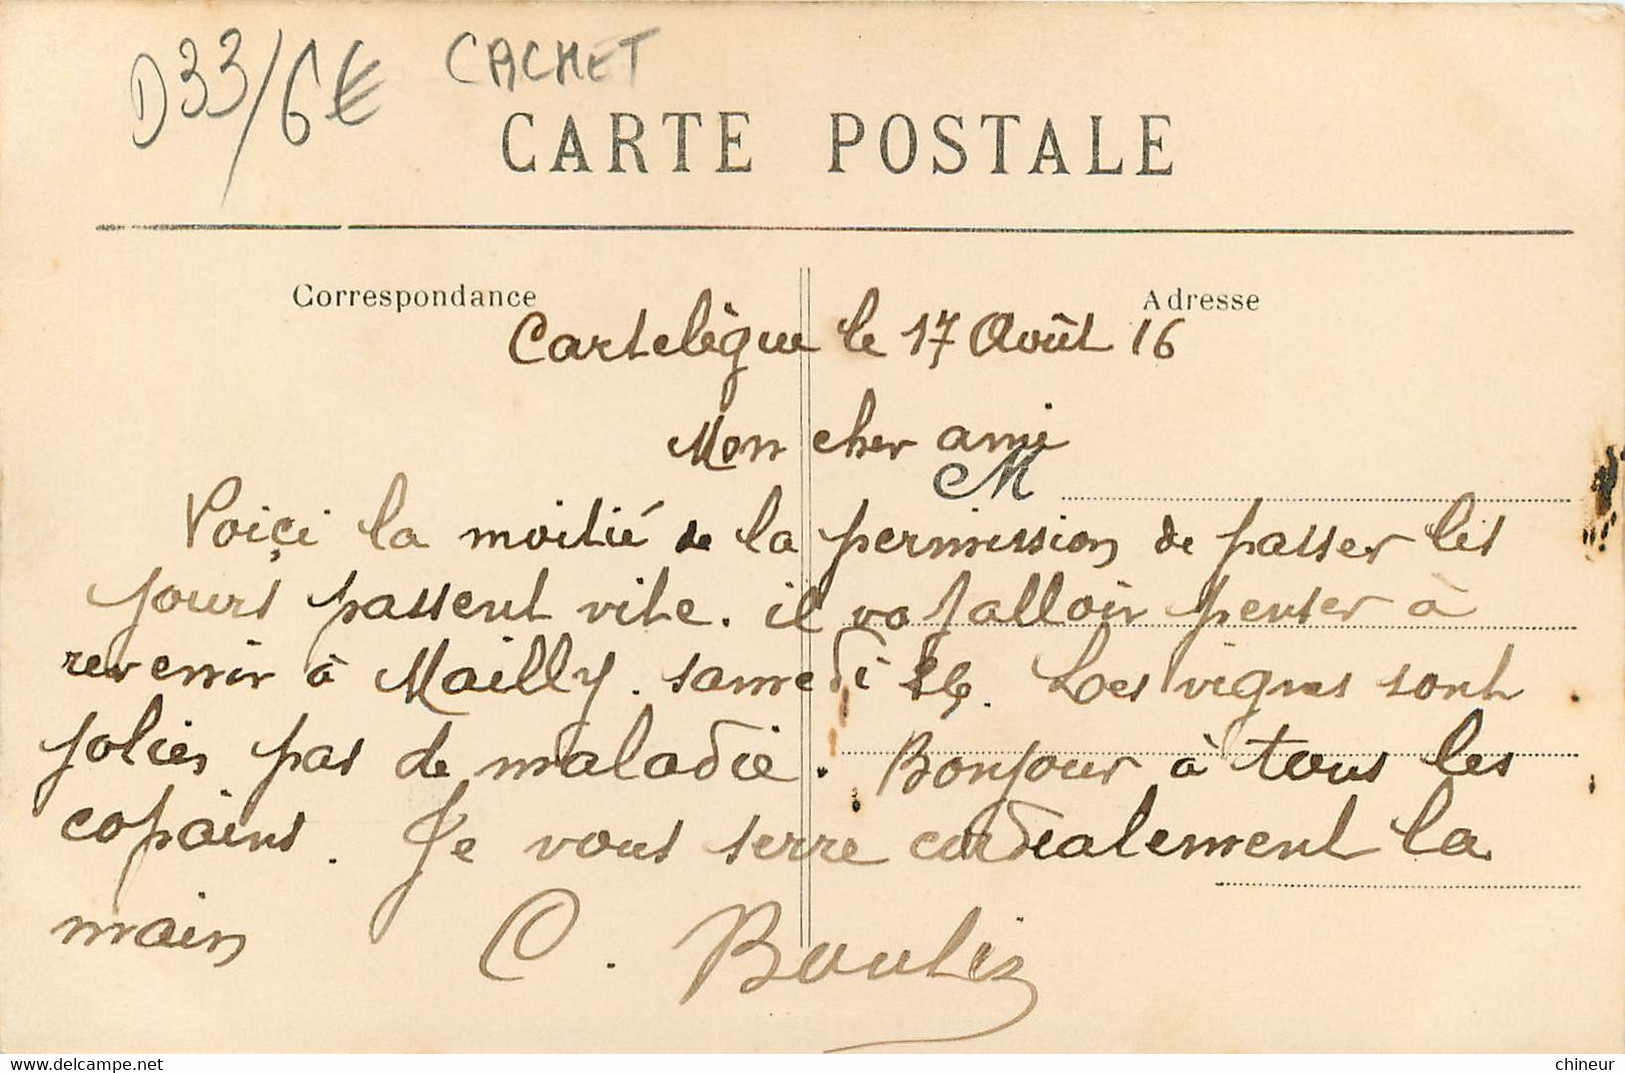 D33/6€ CACHET
CARTE POSTALE
Correspondance
Adresse
Cartelègue le 17 Août 16
Mon cher ami
M
Voiçi la moitié de la permission de passer les
jours passent vite. il va falloir penser à
revenir à Mailly. samedi 26. Les vignes sont
jolies pas de maladie. Bonjour à tous les
copains. Je vous serre cordialement la
main C.
delcampe.net
chineur